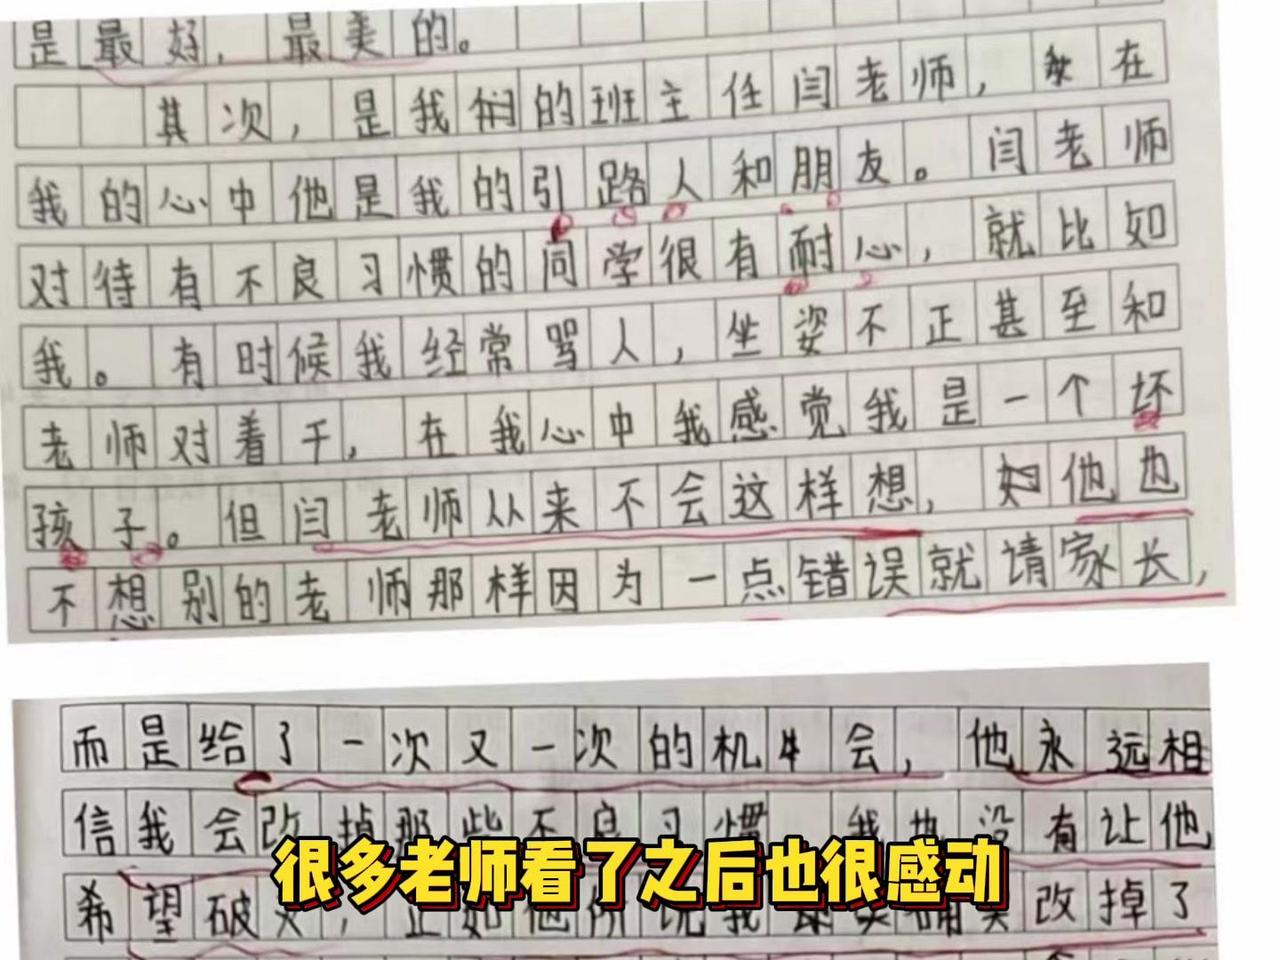 是最好，最美的。
其次，是我们的班主任闫老师，在
我的心中他是我的引路人和朋友。闫老师
对待有不良习惯的同学很有耐心，就比如
我。有时候我经常骂人，坐姿不正甚至和
老师对着干，在我心中我感觉我是一个坏
孩子。但闫老师从来不会这样想，他也
不想别的老师那样因为一点错误就请家长，
而是给了一次又一次的机会，他永远相
信我会改掉那些不良习惯 我也没有让他
很多老师看了之后也很感动
希望破灭，正如他所说我 改掉了